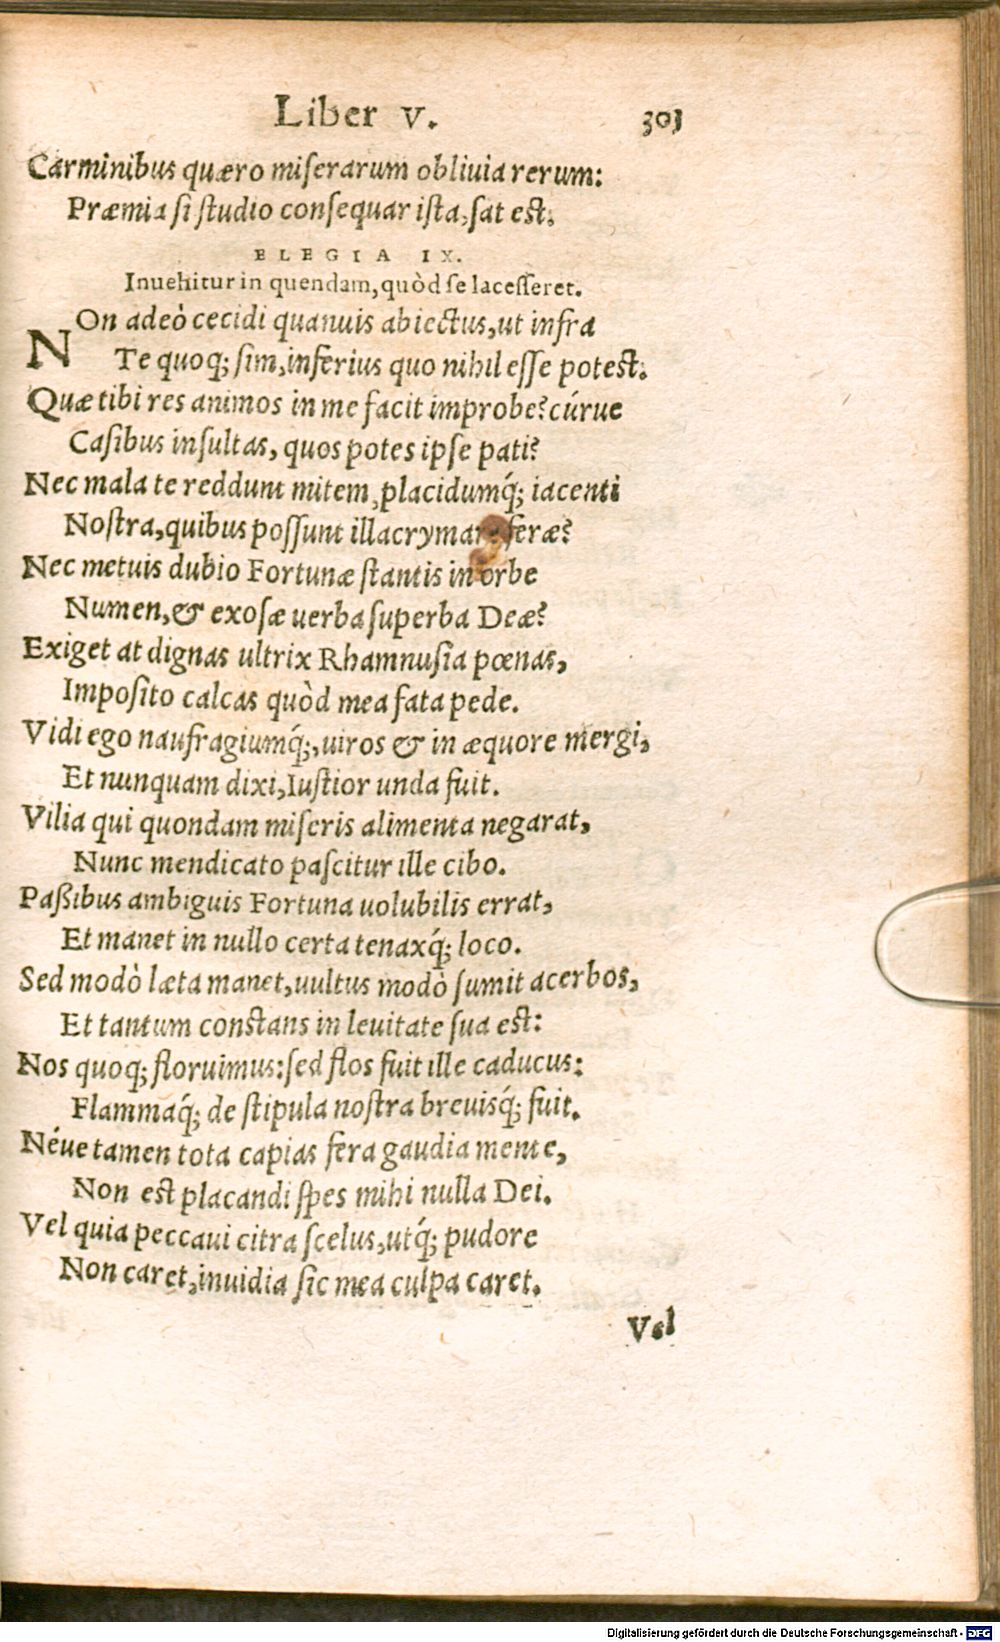 Liber V. 303
Carminibus quæro miſerarum obliuia rerum:
Præmia ſi ſtudio conſequar iſta, ſat est.
ELEGIA IX.
Inuehitur in quendam, quòd ſe laceſſeret.
NOn adeò cecidi quanuis abiectus, ut infra
Te quoq; ſim, inferius quo nihil eſſe potest.
Quæ tibi res animos in me facit improbe? cúrue
Caſibus inſultas, quos potes ipſe pati?
Nec mala te reddunt mitem, placidumq́; iacenti
Noſtra, quibus poſſunt illacrymare feræ?
Nec metuis dubio Fortunæ ſtantis in orbe
Numen, & exoſæ uerba ſuperba Deæ?
Exiget at dignas ultrix Rhamnuſia pœnas,
Impoſito calcas quòd mea fata pede.
Vidi ego naufragiumq́;, uiros & in æquore mergi,
Et nunquam dixi, Iuſtior unda fuit.
Vilia qui quondam miſeris alimenta negarat,
Nunc mendicato paſcitur ille cibo.
Paßibus ambiguis Fortuna uolubilis errat,
Et manet in nullo certa tenaxq́; loco.
Sed modò læta manet, uultus modò ſumit acerbos,
Et tantum constans in leuitate ſua est:
Nos quoq; floruimus: ſed flos fuit ille caducus:
Flammaq́; de ſtipula noſtra breuisq́; fuit.
Néue tamen tota capias fera gaudia mente,
Non est placandi ſpes mihi nulla Dei.
Vel quia peccaui citra ſcelus, utq́; pudore
Non caret, inuidia ſic mea culpa caret.
Vel
Digitalisierung gefördert durch die Deutsche Forschungsgemeinschaft - DFG